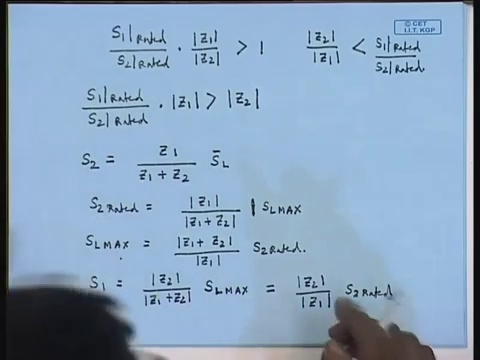 © CET
I.I.T. KGP
S1|Rated / S2|Rated · |Z1| / |Z2| > 1    |Z2| / |Z1| < S1|Rated / S2|Rated
S1|Rated / S2|Rated · |Z1| > |Z2|
S2 = Z1 / (Z1 + Z2) S̄L
S2 Rated = |Z1| / |Z1 + Z2| | SLMAX
SLMAX = |Z1 + Z2| / |Z1| S2 Rated.
S1 = |Z2| / |Z1 + Z2| SLMAX = |Z2| / |Z1| S2 Rated